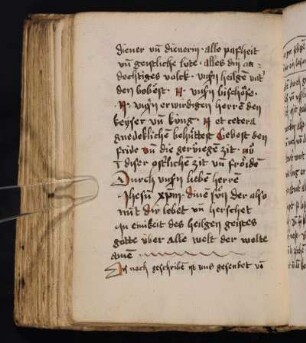 diener vn̄ dienerin · alle pafheit
vn̄ geistliche lote · alles din an
dechtiges volck · vnsn̄ heilgen vat
den bobest · N · vnsn̄ bischofe ·
N · vnsn̄ erwirdigen herrē den
keyser vn̄ kōng · N et cetera
gnedeklichen behüttest Gebest den
friden vn̄ die geruͦwege zit · nū
I diser osterliche zit vn̄ fröide
Durch vnsn̄ liebē herrē
Jhesuͦ xp̄m · dinē sun̄ der also
mit dir lebet vn̄ herschet
In einikeit des heilgen geistes
gotte über alle welt der welte
amē
nach geschribē ist vns gesendet vō